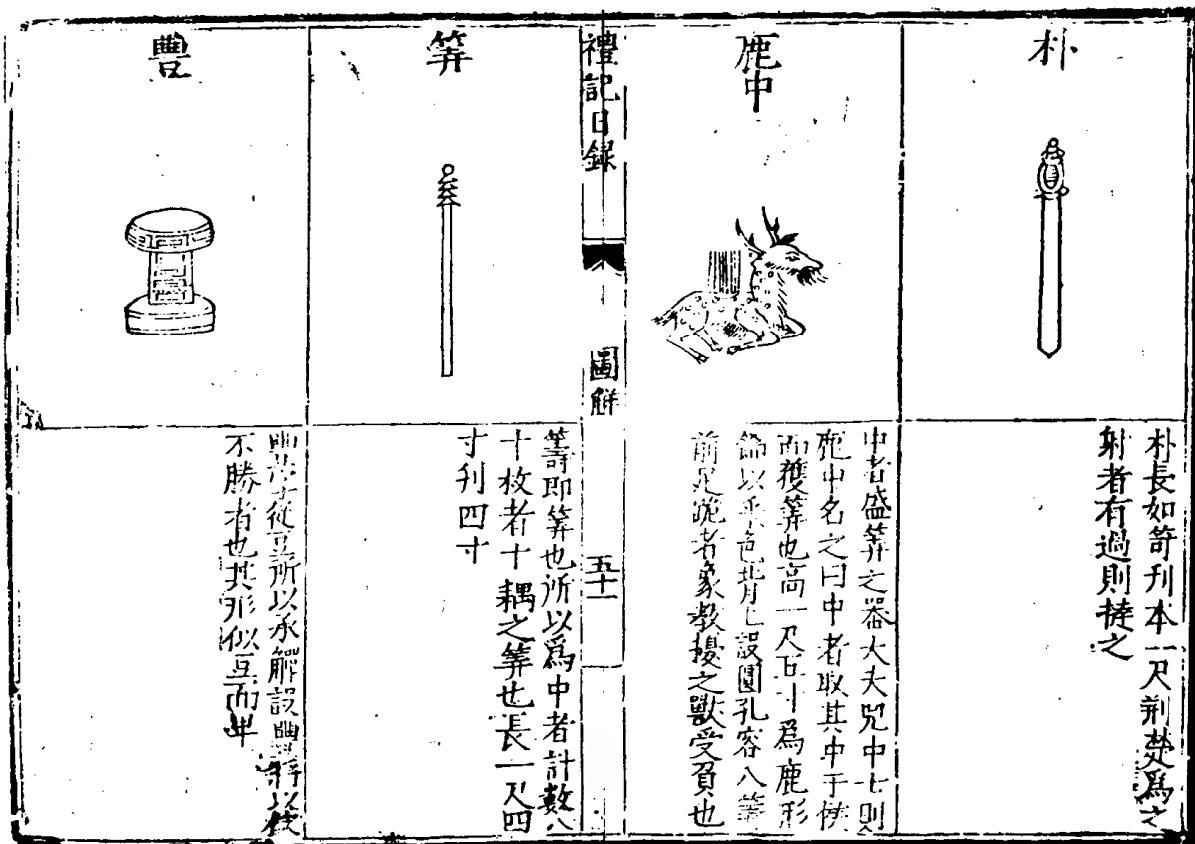 朴
朴長如笴刋本一尺荆楚爲之
射者有過則撻之
鹿中
中者盛筭之器大夫兕中士則
鹿中名之曰中者取其中于侯
而獲筭也高一尺五寸爲鹿形
飾以采色背上設圓孔容八筭
前足跪者象教擾之獸受負也
禮記目録
圖解
五十一
筭
籌即筭也所以爲中者計數八
十枚者十耦之筭也長一尺四
寸刋四寸
豊
從豆所以承觶設豐觶以飲
不勝者也其形似豆而卑